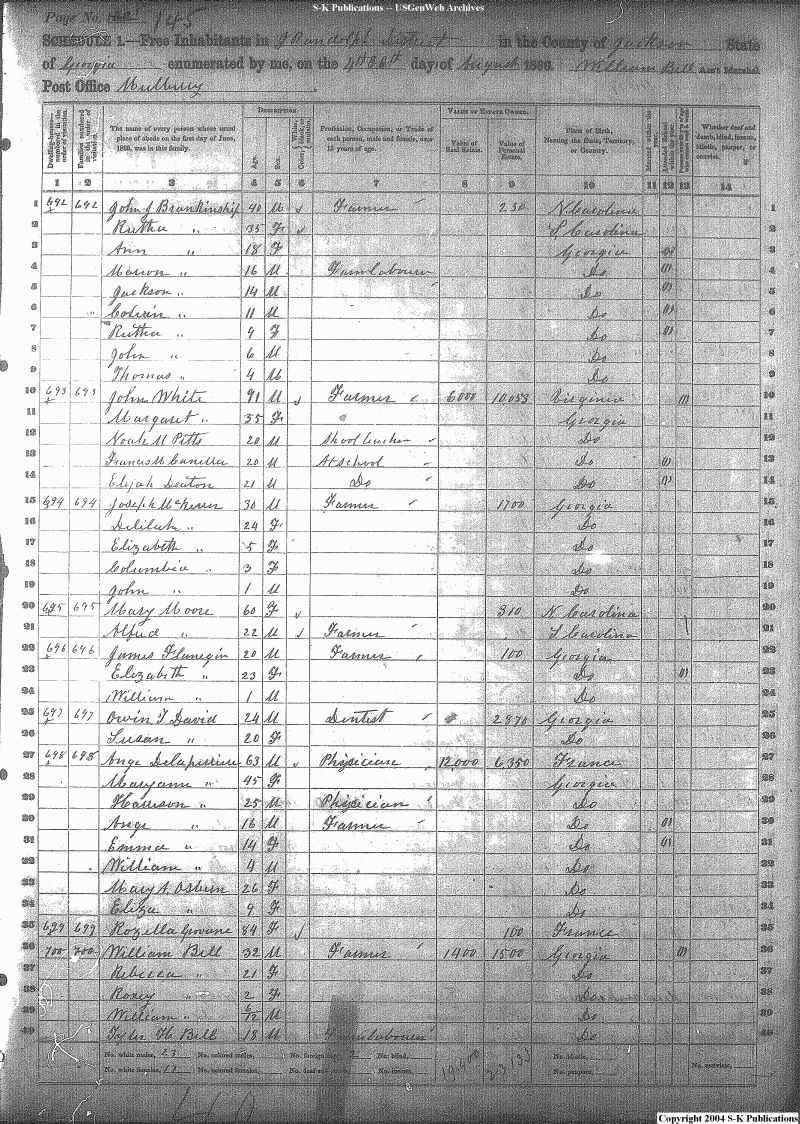 S-K Publications -- USGenWeb Archives
Page No. 145
SCHEDULE 1.—Free Inhabitants in J Randolph District in the County of Jackson State
of Georgia enumerated by me, on the day of August 1860. William Bell Ass't Marshal.
Post Office Mulberry
Dwelling-houses—numbered in the order of visitation.
Families numbered in the order of visitation.
The name of every person whose usual place of abode on the first day of June, 1860, was in this family.
DESCRIPTION.
Age.
Sex.
White, black, or mulatto. Color,
Profession, Occupation, or Trade of each person, male and female, over 15 years of age.
VALUE OF ESTATE OWNED.
Value of Real Estate.
Value of Personal Estate.
Place of Birth, Naming the State, Territory, or Country.
Married within the year.
Attended School within the year.
Whether deaf and dumb, blind, insane, idiotic, pauper, or convict.
1 2 3 4 5 6 7 8 9 10 11 12 13 14
1 692 692 John J 40 M Farmer 250 N. Carolina 1
2 Rutha " 35 F S. Carolina 2
3 Ann " 18 F Georgia 3
4 Marion " 16 M Farm labourer Do 4
5 Jackson " 14 M Do 5
6 " 11 M Do 6
7 Rutha " 9 F Do 7
8 John " 6 M Do 8
9 Thomas " 4 M Do 9
10 693 693 John White 91 M Farmer 6000 10,053 Virginia 10
11 Margaret " 35 F Georgia 11
12 Noah M Pitts 20 M School teacher Do 12
13 Francis M 20 M At School Do 13
14 Elijah Deaton 21 M Do Do 14
15 694 694 Joseph 30 M Farmer 1700 Georgia 15
16 Delilah " 24 F Do 16
17 Elizabeth " 5 F Do 17
18 Columbia " 3 F Do 18
19 John " 1 M Do 19
20 695 695 Mary Moore 60 F 310 N. Carolina 20
21 Alfred " 22 M Farmer S. Carolina 21
22 696 696 James Flanegin 20 M Farmer 100 Georgia 22
23 Elizabeth " 23 F Do 23
24 William " 1 M Do 24
25 697 697 Owin T David 24 M Dentist 2870 Georgia 25
26 Susan " 20 F Do 26
27 698 698 Ange Delaperriere 63 M Physician 12,000 6,350 France 27
28 Maryann " 45 F Georgia 28
29 Harrison " 25 M Physician Do 29
30 Ange " 16 M Farmer Do 30
31 Emma " 14 F Do 31
32 William " 4 M Do 32
33 Mary A Osburn 26 F Do 33
34 Eliza " 9 F Do 34
35 699 699 Rozella 84 F 100 France 35
36 700 700 William Bell 32 M Farmer 1400 1500 Georgia 36
37 Rebecca " 21 F Do 37
38 Roxey " 2 F Do 38
39 William " 6/12 M Do 39
40 Tyler H Bell 18 M Farm labourer Do 40
No. white males, 23 No. colored males, No. foreign 2 No. blind, 19,400 23,133 No. idiotic, No. convicts,
No. white females, 17 No. colored females, No. deaf No. insane, No. paupers,
40
Copyright 2004 S-K Publications